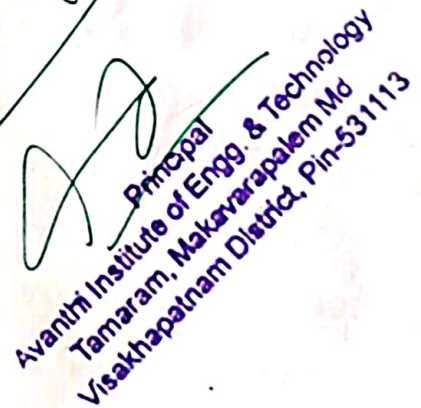 Principal
Avanthi Institute of Engg. & Technology
Tamaram, Makavarapalem Md
Visakhapatnam District, Pin-531113